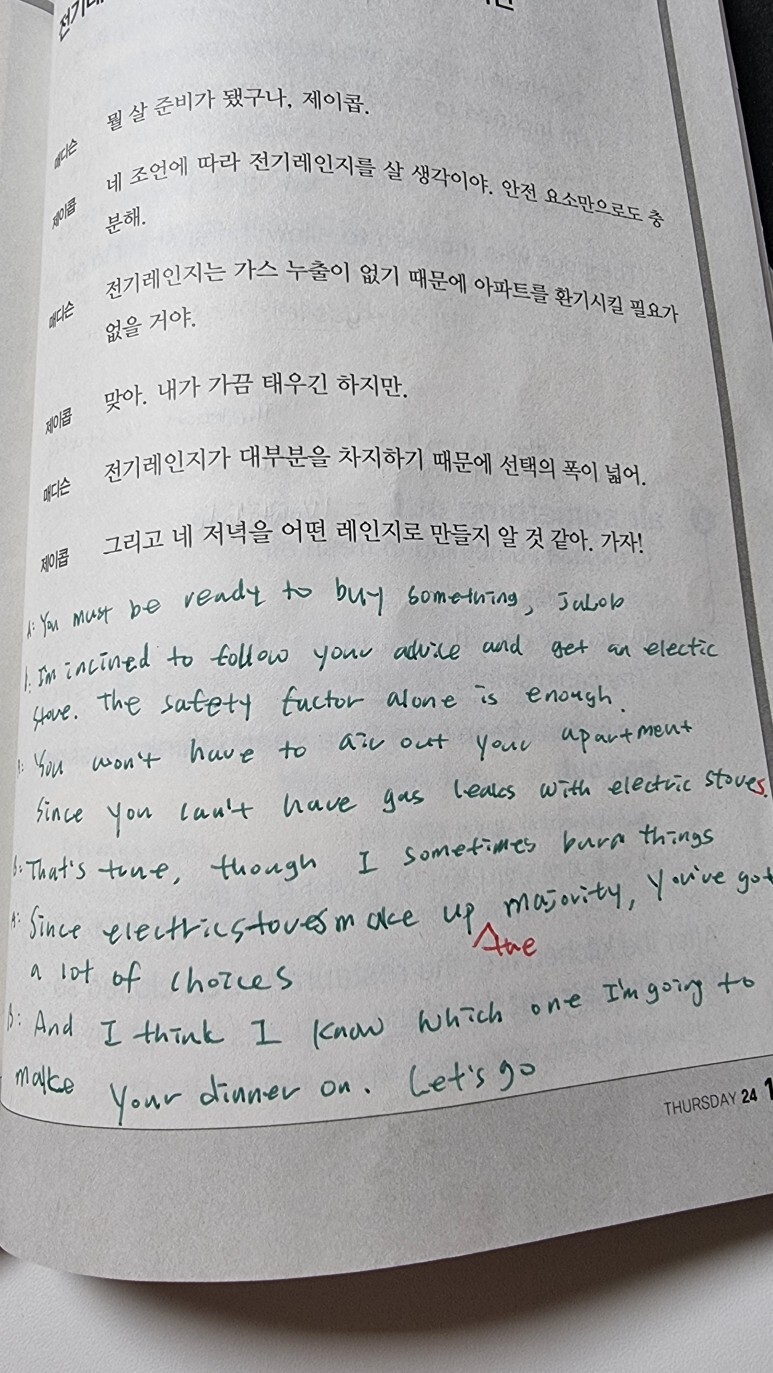 전기레
매디슨 뭘 살 준비가 됐구나, 제이콥.
제이콥 네 조언에 따라 전기레인지를 살 생각이야. 안전 요소만으로도 충
분해.
매디슨 전기레인지는 가스 누출이 없기 때문에 아파트를 환기시킬 필요가
없을 거야.
제이콥 맞아. 내가 가끔 태우긴 하지만.
매디슨 전기레인지가 대부분을 차지하기 때문에 선택의 폭이 넓어.
제이콥 그리고 네 저녁을 어떤 레인지로 만들지 알 것 같아. 가자!
A: You must be ready to buy something, Jacob
B: I'm inclined to follow your advice and get an electic
stove. The safety factor alone is enough.
A: You won't have to air out your apartment
since you can't have gas leaks with electric stoves.
B: That's true, though I sometimes burn things
A: Since electric stoves make up the majority, You've got
a lot of choices
B: And I think I know which one I'm going to
make your dinner on. Let's go
THURSDAY 24 1